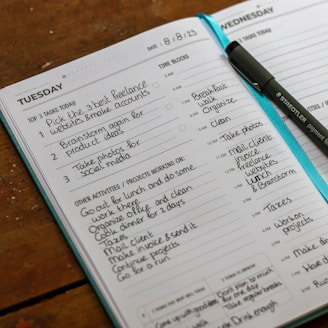 DATE: 8/8/23
TUESDAY
TOP 3 TASKS TODAY
1 Pick the 3 best freelance
websites & make accounts
2 Brainstorm again for
product ideas
3 Take photos for
social media
OTHER ACTIVITIES / PROJECTS WORKING ON:
Go out for lunch and do some
work there
Organize office and clean
Cook dinner for 2 days
Taxes
Mail client
Make invoice & send it
Continue projects
Go for a run
TIME BLOCKS
Breakfast
walk
Organize
clean
Take photos
Mail client
invoice
freelance
websites
lunch
& Brainstorm
Taxes
Work on
projects
Make
Have d
Run
THINGS TO IMPROVE
Don't plan to much
for one day
Take regular breaks
Come up with
Drink enough
WEDNESDAY
3 TASKS TODAY
STAEDTLER